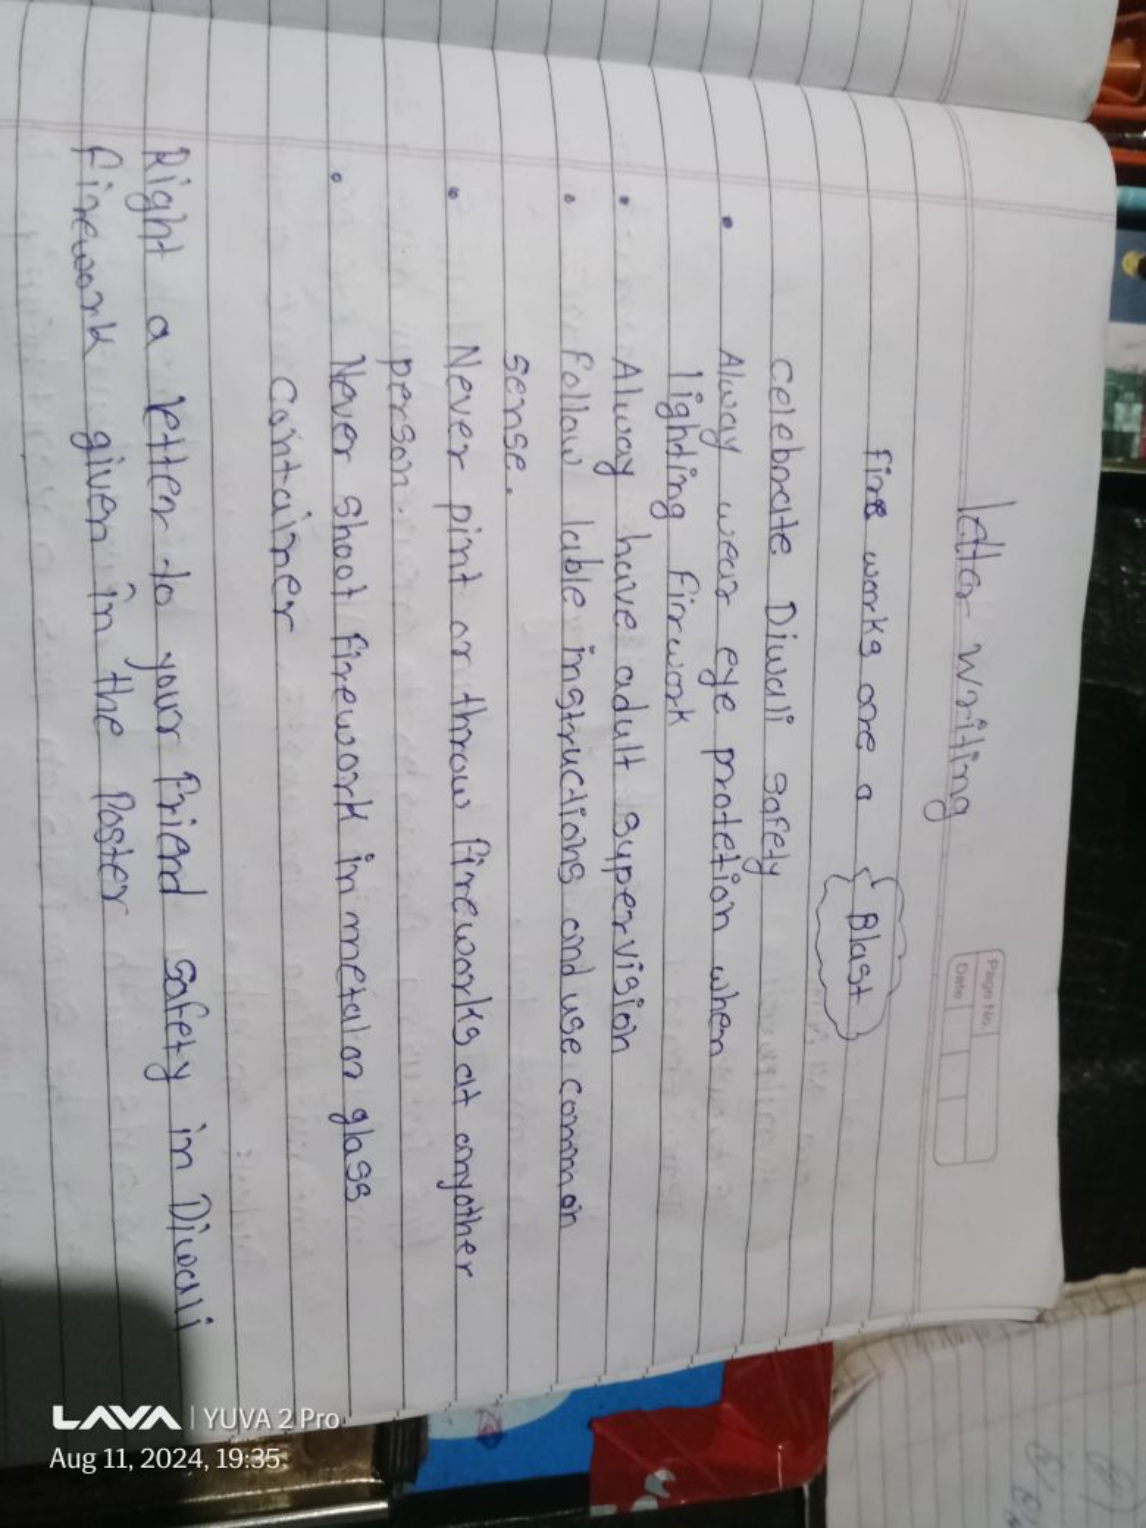 letter writing
Page No.
Date
fire works are a Blast
Celebrate Diwali Safety
• Alway wear eye protetion when
lighting firwork
• Alway have adult supervision
• follow lable instructions and use common
sense.
• Never pint or throw fireworks at anyother
person.
• Never shoot firework in metal or glass
Container
Right a letter to your Friend safety in Diwali
Firework given in the Poster
LAVA | YUVA 2 Pro
Aug 11, 2024, 19:35